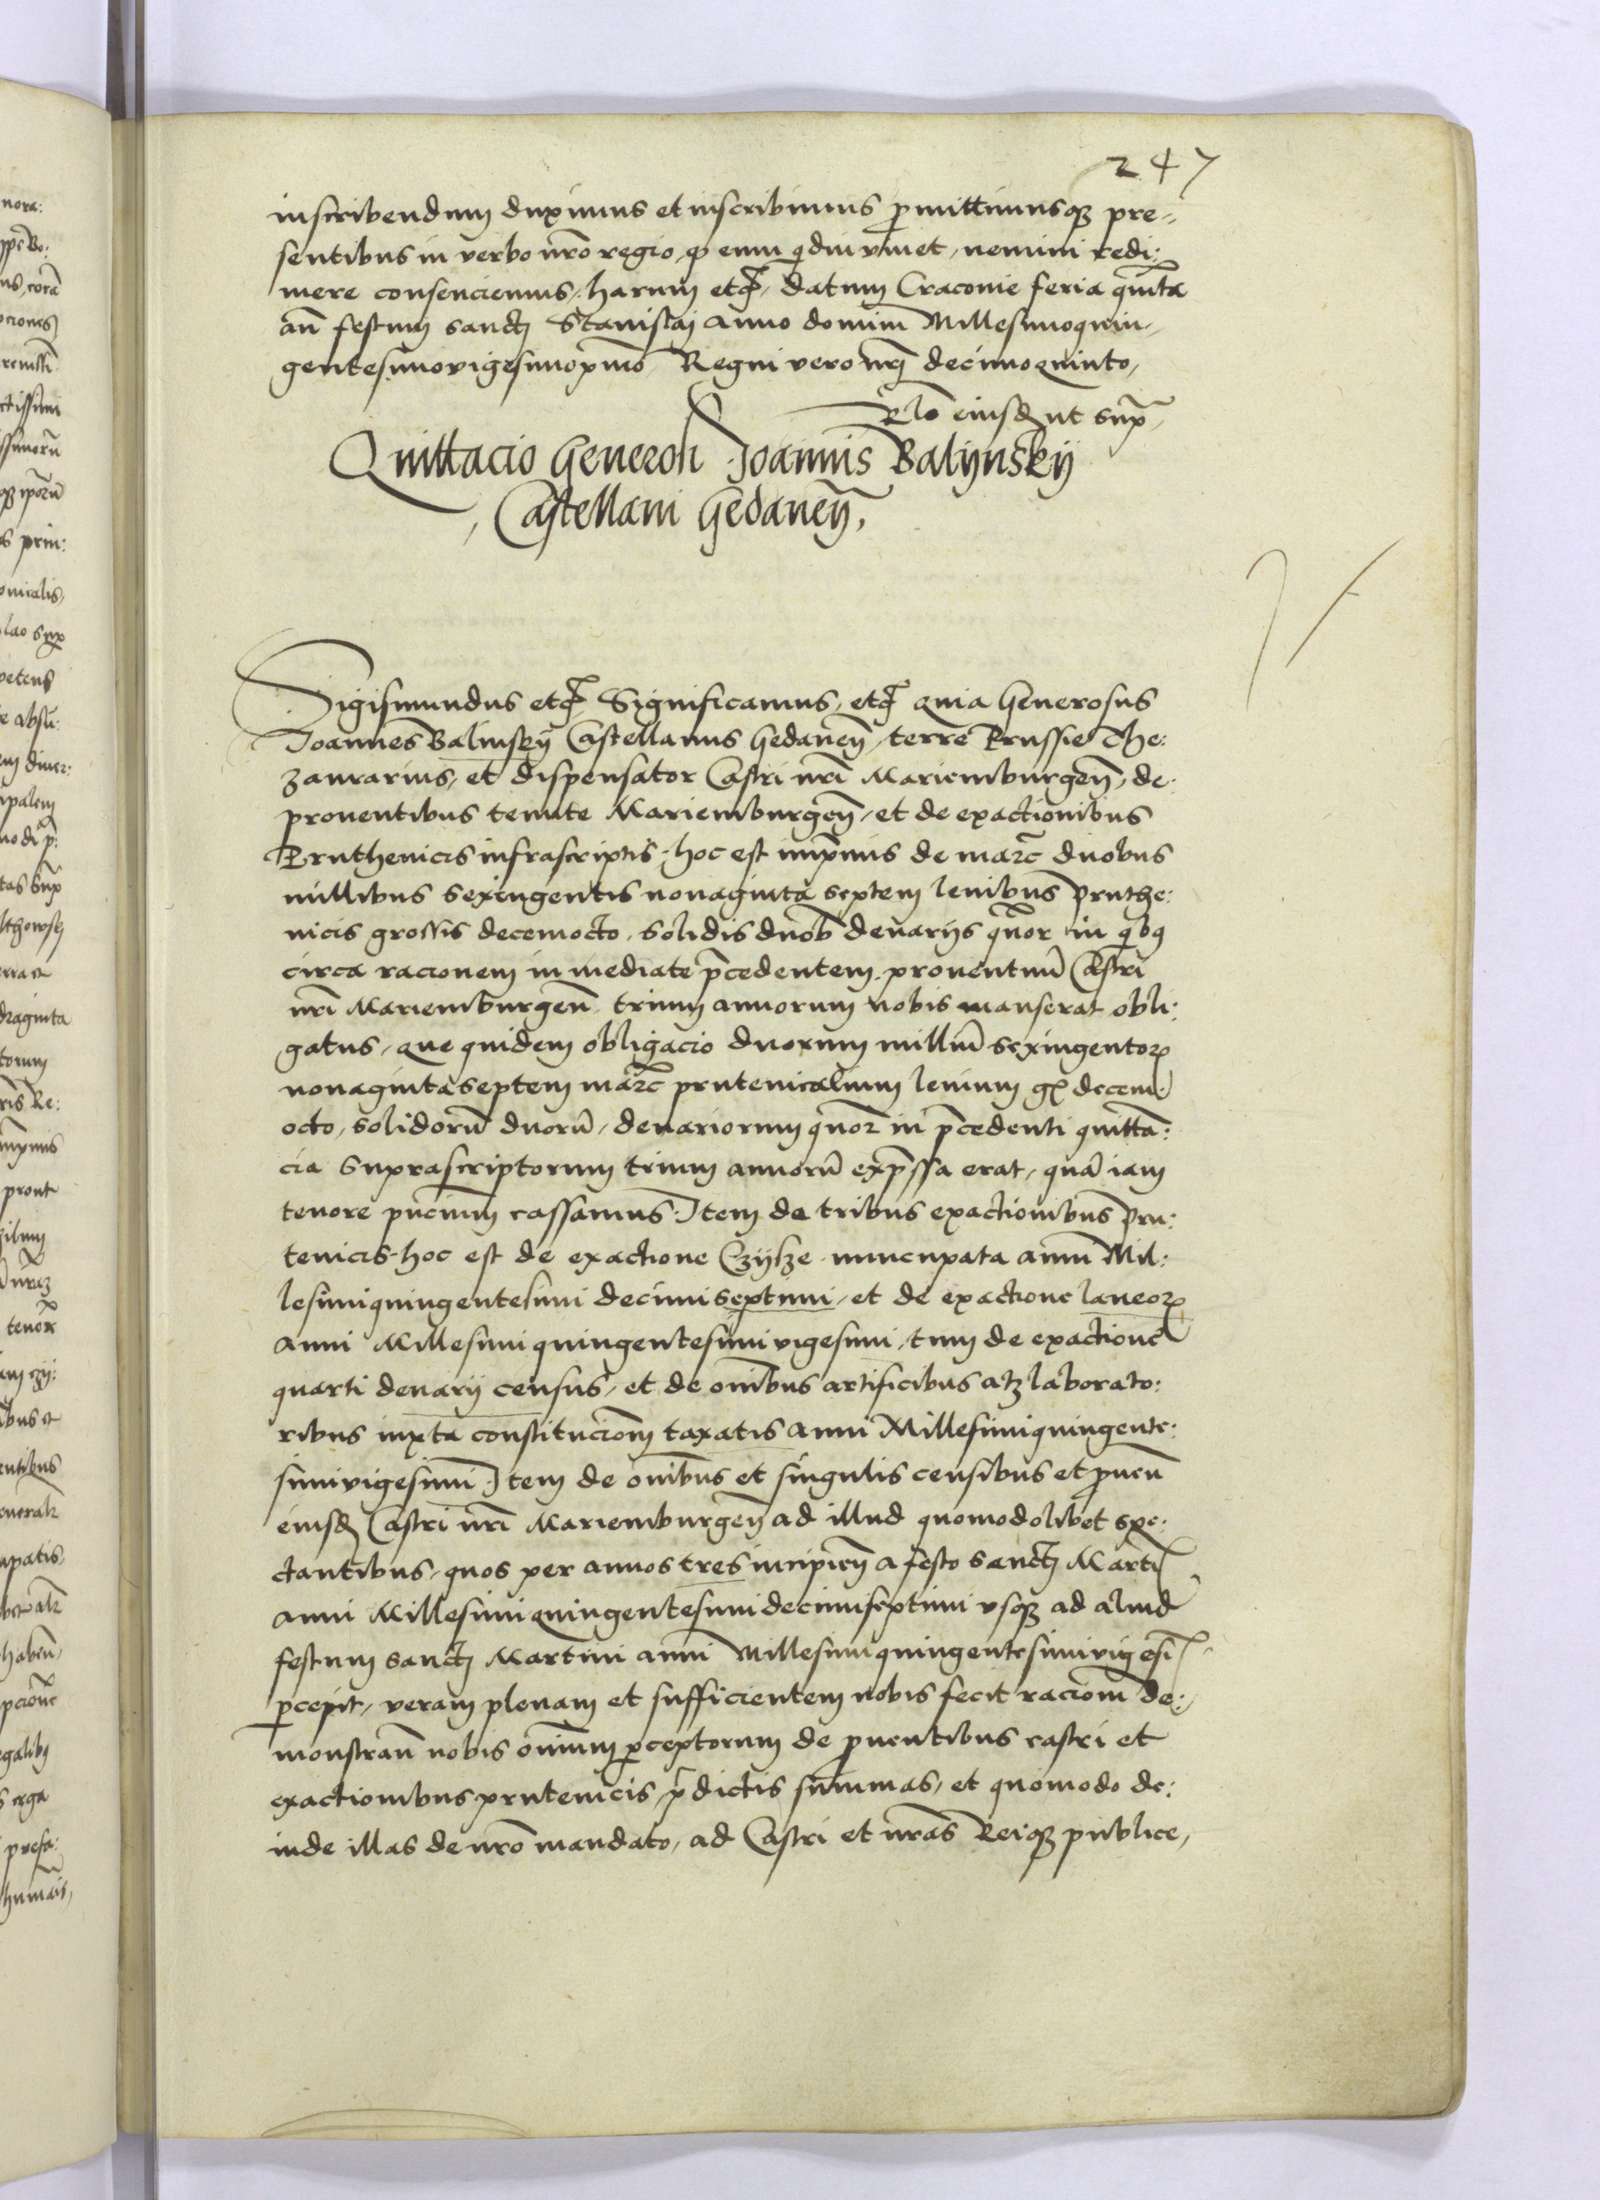 247
inscribendum duximus et inscribimus p̄mittimusqʒ pre-
sentibus in verbo nr̄o regio, ꝙ eum qdiu vivet, nemini redi:
mere consenciemus, harum etc̄, datum Craconie feria qūita
añ festum sancti Stanislai Anno domini Millesimoquin-
gentesimovigesimopͥmo Regni vero nr̄i decimoquinto,
Rlō eiusdē ut supͣ
Quittacio Generosi Joannis Balijnskij
Castellani Gedaneñ,
Sigismundus etc̄ Significamus, etc̄ quia Generosus
Joannes Balinskij Castellanus Gedaneñ, terre Prussie The:
zaurarius, et dispensator Castri nr̄i Mariemburgeñ, de
proventibus tenute Mariemburgeñ, et de exactionibus
Pruthenicis infrascriptis, hoc est imp̄mis de marc̄ duobus
millibus sexingentis nonaginta septem levibus Pruthe:
nicis grossis decemocto, solidis duob denarijs qͣuor in qͥbꝯ
circa racionem in mediate p̄cedentem proventuū Castri
nr̄i Mariemburgeñ trium annorum nobis manserat obli:
gatus, que quidem obligacio duorum milliū sexingentoꝝ
nonagintaseptem marc̄ prutenicalium levium gͬ decem:
octo, solidorū duorū, denariorum qͣuor in p̄cedenti quitta:
cia suprascriptorum trium annorū exp̄ssa erat, quā iam
tenore pn̄cium cassamus. Item de tribus exactionibus Pru:
tenicis hoc est de exactione Czijsze nuncupata anni Mil:
lesimiquingentesimi decimiseptimi, et de exactione laneoꝝ
anni Millesimi quingentesimi vigesimi, tum de exactione
quarti denarij census, et de om̄ibus artificibus atqʒ laborato:
ribus iuxta constitucionē taxatis anni Millesimiquingente:
simivigesimi. Item de om̄ibus et singulis censibus et ꝓuen̄
eiusdē Castri nr̄i Mariemburgeñ ad illud quomodolibet spe:
ctantibus, quos per annos tres incipieñ a festo sancti Martī
anni Millesimiquingentesimi decimiseptimi vsqʒ ad aliud
festum sancti Martini anni Millesimiquingentesimivigesī
ꝑcepit, veram plenam et sufficientem nobis fecit racionē de:
monstrañ nobis om̄ium ꝑceptorum de ꝓuentibus castri et
exactionibus prutenicis p̄dictis summas, et quomodo de:
inde illas de nr̄o mandato, ad Castri et nr̄as Reiqʒ publice,